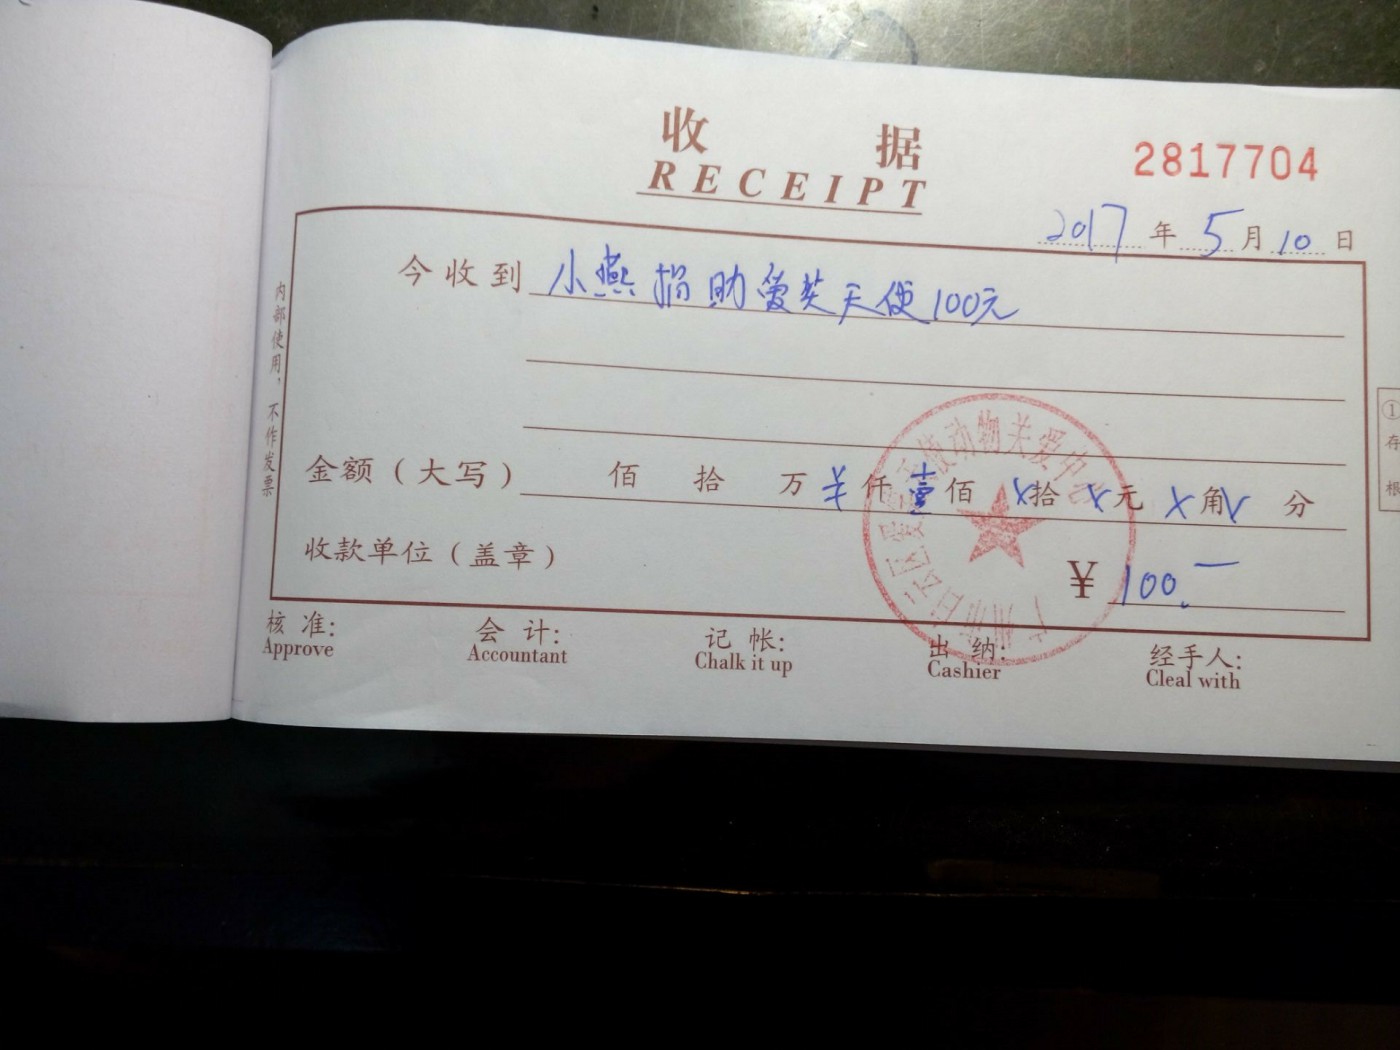 收 据
RECEIPT
2817704
2017 年 5 月 10 日
今收到 小燕捐助爱英天使100元
金额（大写） 佰 拾 万 ¥ 仟 壹 佰 X 拾 X 元 X 角 X 分
收款单位（盖章） ¥ 100.—
核 准: 会 计: 记 帐: 出 纳: 经手人:
Approve Accountant Chalk it up Cashier Cleal with
内部使用，不作发票
① 存 根
动物关爱中
广州市白云区爱